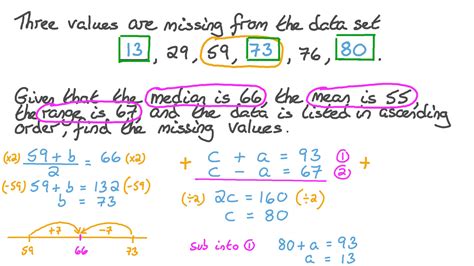 Three values are missing from the data set
13, 29, 59, 73, 76, 80.
Given that the median is 66, the mean is 55,
the range is 67, and the data is listed in ascending
order, find the missing values.
(x2) 59 + b / 2 = 66 (x2)
(-59) 59 + b = 132 (-59)
b = 73
+7 -7
59 66 73
+ c + a = 93 ① +
c - a = 67 ②
(÷2) 2c = 160 (÷2)
c = 80
sub into ① 80 + a = 93
a = 13